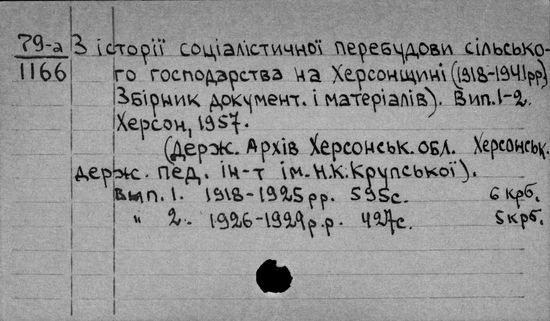 79-а З історії соціалістичної перебудови сільсько-
1166 го господарства на Херсонщині (1918-1941рр)
Збірник документ. і матеріалів). Вип.1-2.
Херсон, 1957.
(Держ. Архів Херсонськ. обл. Херсонськ.
держ. пед. ін-т ім. Н.К.Крупської).
Вып. 1. 1918-1925рр. 595с. 6 крб.
" 2. 1926-1929р.р. 427с. 5 крб.